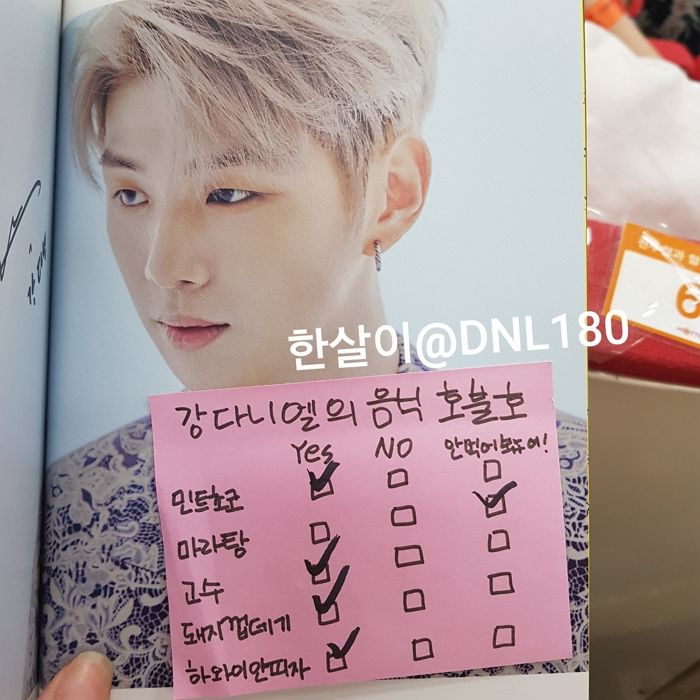 한살이@DNL180
강다니엘의 음식 호불호
Yes NO 안먹어봤어!
민트초코
마라탕
고수
돼지껍데기
하와이안피자
6